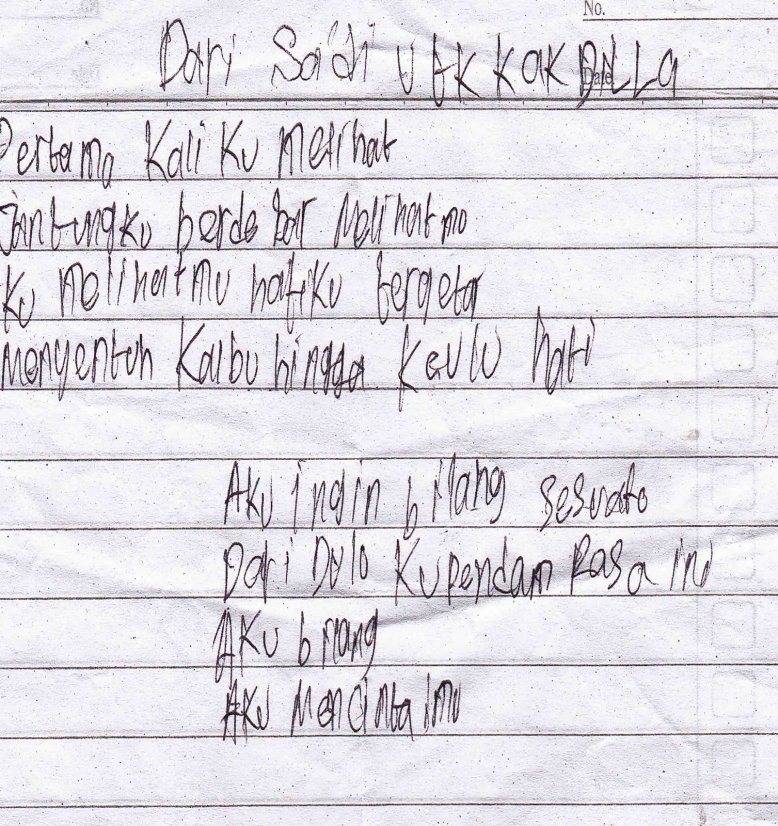 No.
Dari Saidi utk kak DiLLa
Date
Pertama Kali Ku Melihat
Jantungku berdebar Melihatmu
Ku Melihatmu hatiku bergetar
Menyentuh Kalbu hingga Keulu hati
Aku ingin bilang sesuatu
Dari Dulu Kupendam Rasa ini
Aku bilang
Aku Mencintaimu